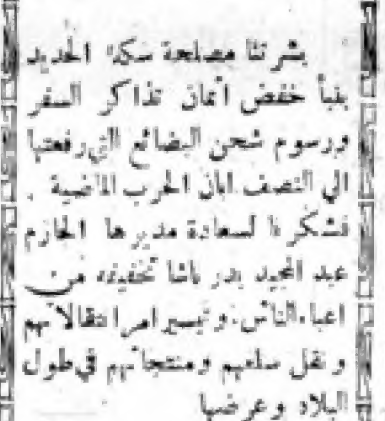 بشرتنا مصلحة سكة الحديد
بنبأ خفض أثمان تذاكر السفر
ورسوم شحن البضائع التي رفعتها
الي النصف ابان الحرب الماضية .
فشكرنا لسعادة مديرها الحازم
عبد المجيد بدر باشا تخفيفه من
اعباء الناس وتيسير امر انتقالاتهم
ونقل سلعهم ومنتجاتهم في طول
البلاد وعرضها